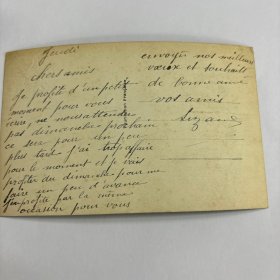 Jeudi
chers amis
Je profite d'un petit
moment pour vous
écrire, ne nous attendez
pas dimanche prochain
ce sera pour un peu
plus tard j'ai trop affaire
pour le moment et je vais
profiter du dimanche pour me
faire un peu d'avance
je profite par la même
occasion pour vous
envoyer nos meilleurs
vœux et souhaits
de bonne année
vos amis